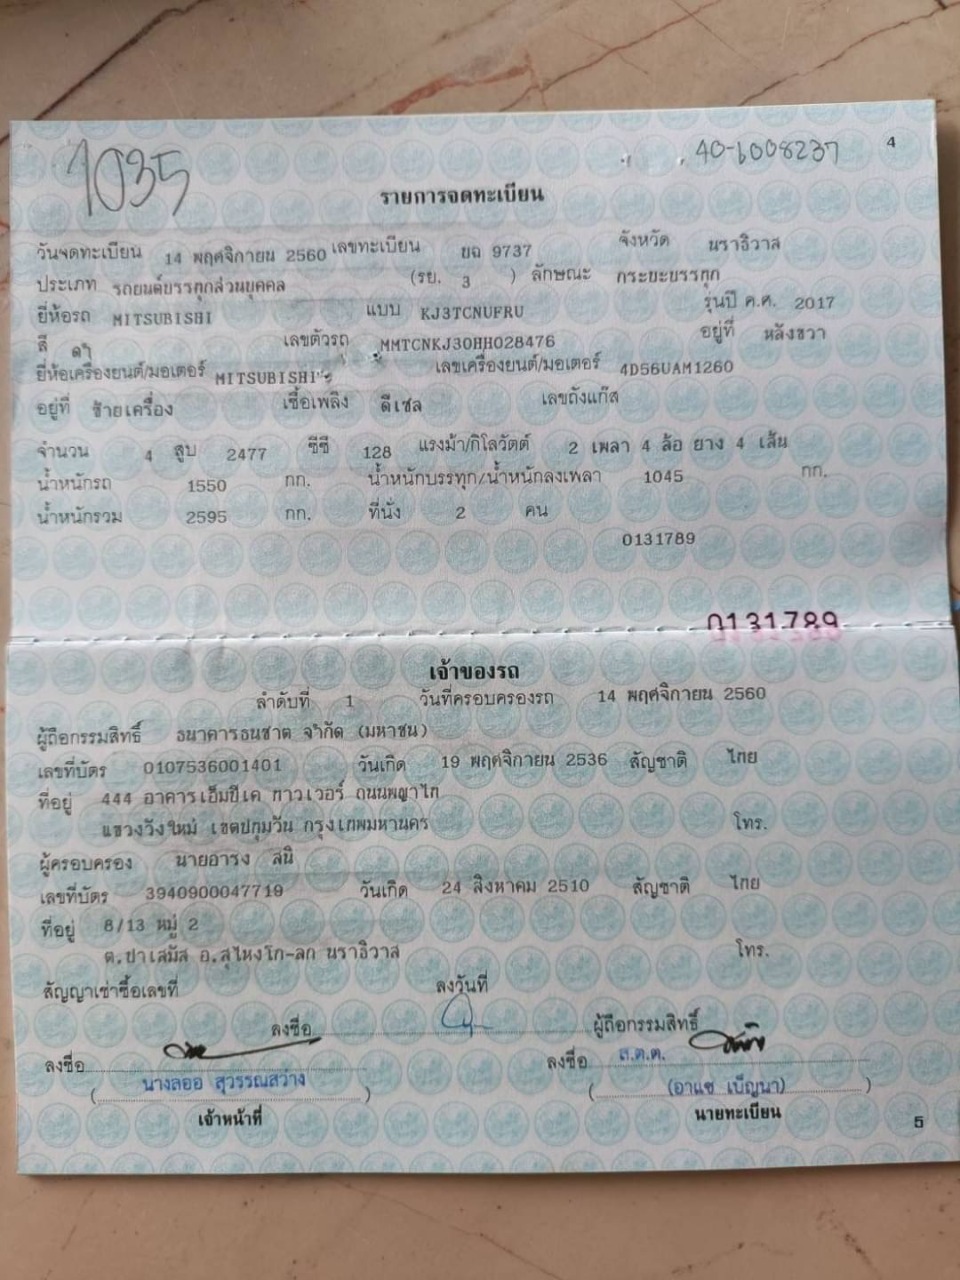 1035
40-1008237
4
รายการจดทะเบียน
วันจดทะเบียน 14 พฤศจิกายน 2560 เลขทะเบียน ยฉ 9737 จังหวัด นราธิวาส
ประเภท รถยนต์บรรทุกส่วนบุคคล (รย. 3 ) ลักษณะ กระยะบรรทุก
ยี่ห้อรถ MITSUBISHI แบบ KJ3TCNUFRU รุ่นปี ค.ศ. 2017
สี ดำ เลขตัวรถ MMTCNKJ30HH028476 อยู่ที่ หลังขวา
ยี่ห้อเครื่องยนต์/มอเตอร์ MITSUBISHI เลขเครื่องยนต์/มอเตอร์ 4D56UAM1260
อยู่ที่ ซ้ายเครื่อง เชื้อเพลิง ดีเซล เลขถังแก๊ส
จำนวน 4 สูบ 2477 ซีซี 128 แรงม้า/กิโลวัตต์ 2 เพลา 4 ล้อ ยาง 4 เส้น
น้ำหนักรถ 1550 กก. น้ำหนักบรรทุก/น้ำหนักลงเพลา 1045 กก.
น้ำหนักรวม 2595 กก. ที่นั่ง 2 คน
0131789
0131789
เจ้าของรถ
ลำดับที่ 1 วันที่ครอบครองรถ 14 พฤศจิกายน 2560
ผู้ถือกรรมสิทธิ์ ธนาคารธนชาต จำกัด (มหาชน)
เลขที่บัตร 0107536001401 วันเกิด 19 พฤศจิกายน 2536 สัญชาติ ไทย
ที่อยู่ 444 อาคารเอ็มบีเค ทาวเวอร์ ถนนพญาไท
แขวงวังใหม่ เขตปทุมวัน กรุงเทพมหานคร โทร.
ผู้ครอบครอง นายอารง สนิ
เลขที่บัตร 3940900047719 วันเกิด 24 สิงหาคม 2510 สัญชาติ ไทย
ที่อยู่ 8/13 หมู่ 2
ต.ปาเสมัส อ.สุไหงโก-ลก นราธิวาส โทร.
สัญญาเช่าซื้อเลขที่ ลงวันที่
ลงชื่อ ผู้ถือกรรมสิทธิ์
ลงชื่อ ลงชื่อ ส.ต.ต.
(นางลออ สุวรรณสว่าง) (อาแซ เบ็ญนา)
เจ้าหน้าที่ นายทะเบียน
5